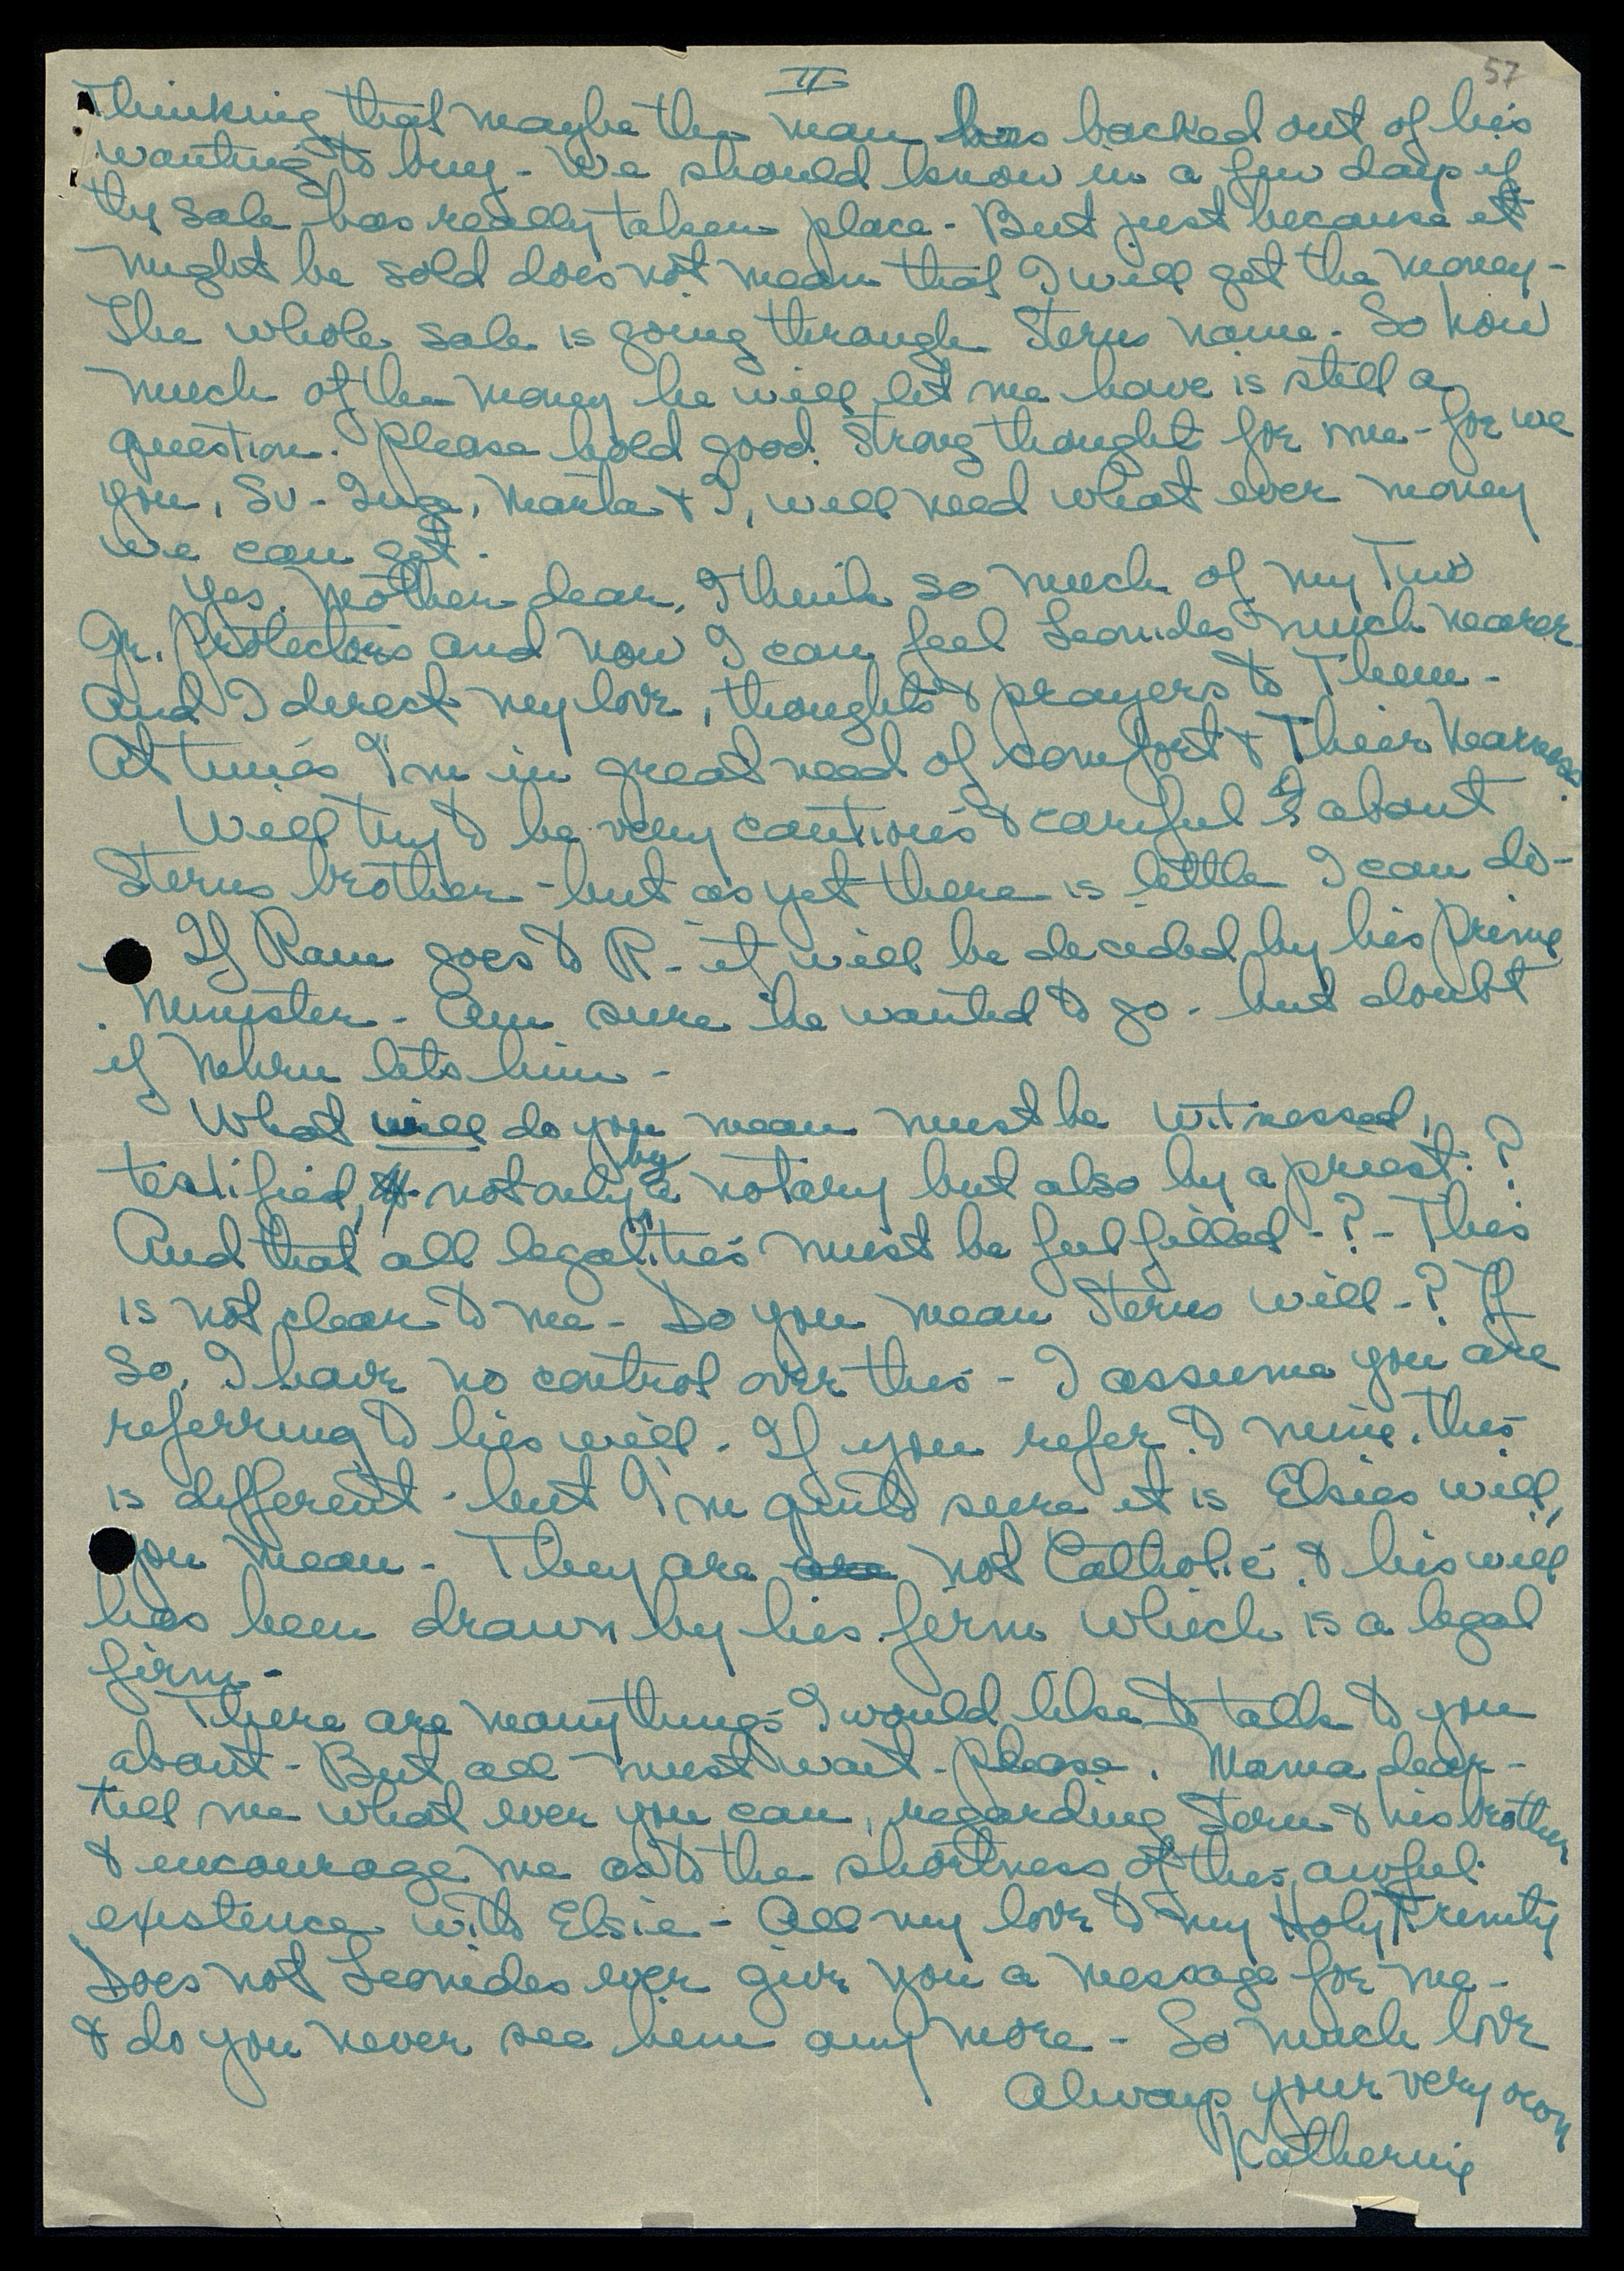 57
II
thinking that maybe the man has backed out of his
wanting to buy - We should know in a few days if
the sale has really taken place - But just because it
might be sold does not mean that I will get the money -
The whole sale is going through Sterns name - So how
much of the money he will let me have is still a
question. Please hold good strong thought for me - for we
you, Sv - Inga, Marta & I, will need what ever money
we can get -
Yes, Mother dear, I think so much of my Two
Gr. Protectors and now I can feel Leonides much nearer
And I direct my love, thoughts & prayers to Them -
At times I'm in great need of comfort & Their Nearness.
Will try to be very cautious & careful about
Sterns brother - but as yet there is little I can do -
If Ram goes to R - it will be decided by his Prime
Minister - Am sure he wanted to go - but doubt
if Nehru lets him -
What will do you mean must be witnessed,
testified, not only by a notary but also by a priest. ?
And that all legalities must be fulfilled - ? - This
is not clear to me - Do you mean Sterns will - ? If
So, I have no control over this - I assume you are
referring to his will - If you refer to mine, this
is different - but I'm quite sure it is Elsies will,
you mean - They are are not Catholic & his will
has been drawn by his firm which is a legal
firm -
There are many things I would like to talk to you
about - But all must wait - Please, Mama dear -
tell me what ever you can, regarding Stern & his brother
& encourage me as to the shortness of this awful
existence with Elsie - All my love to my Holy Trinity
Does not Leonides ever give you a message for me -
& do you never see him any more - So much love
Always your very own
Katherine